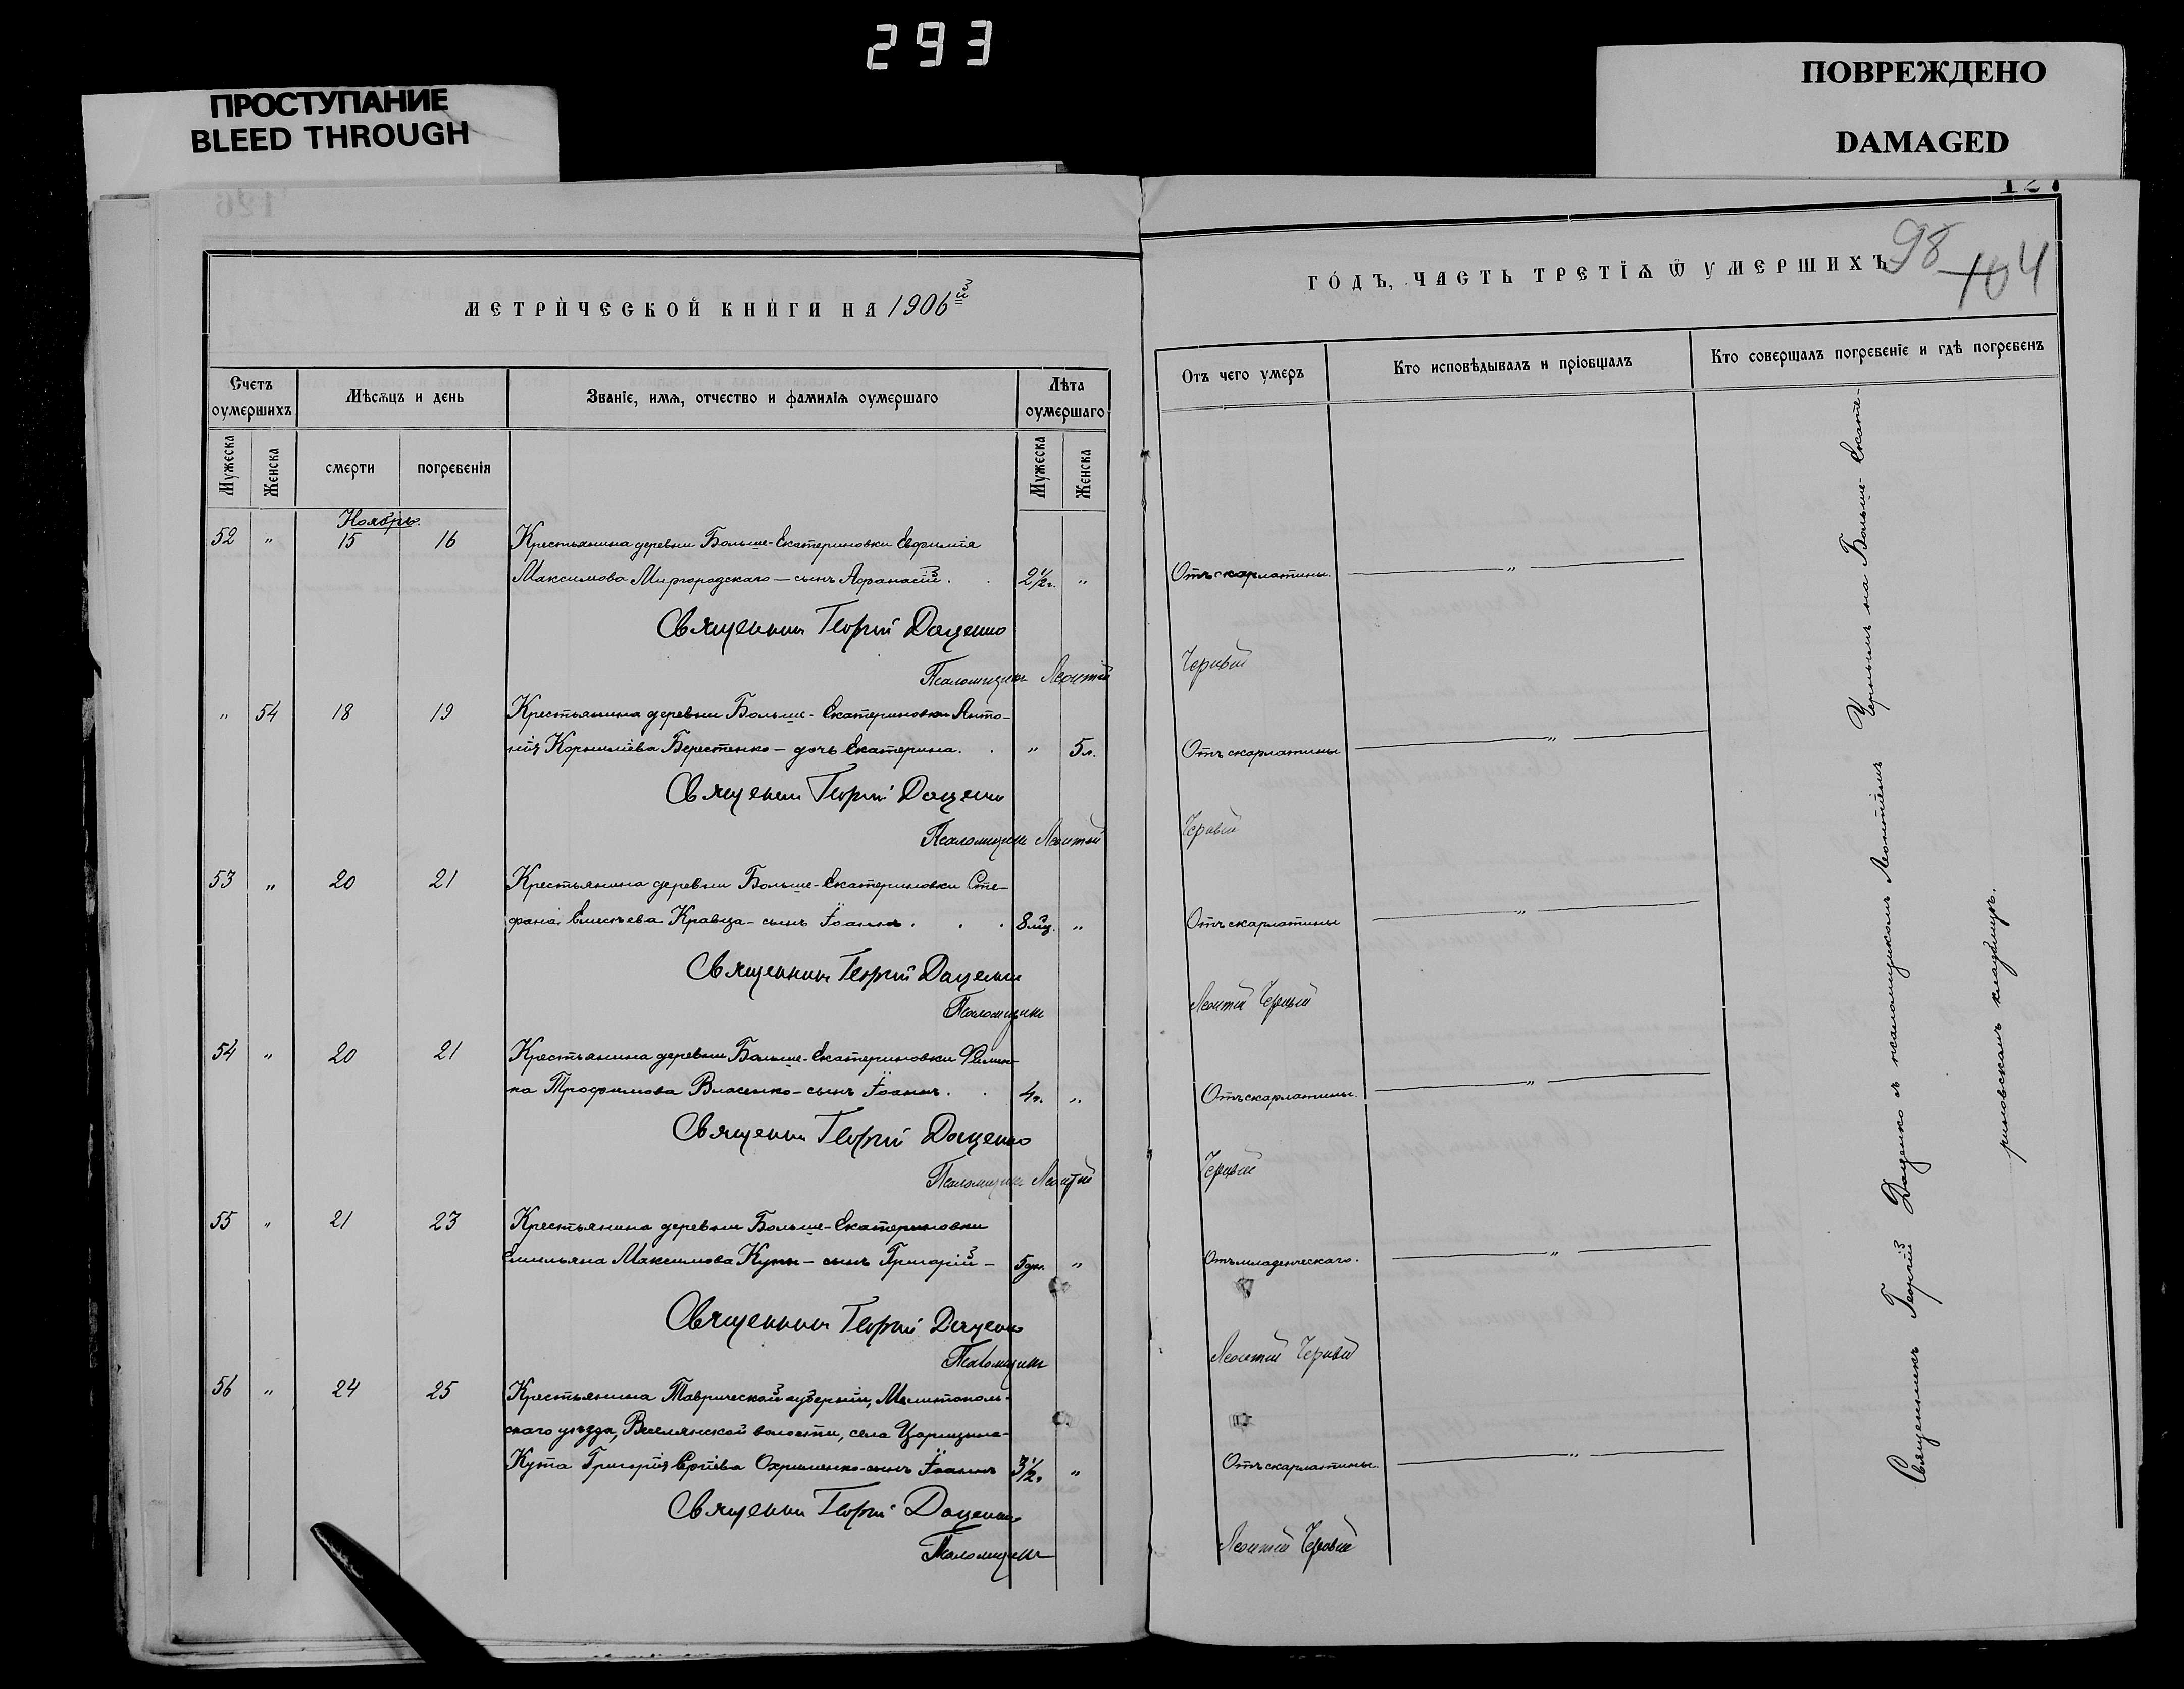 293
ПРОСТУПАНИЕ
BLEED THROUGH
ПОВРЕЖДЕНО
DAMAGED
МЕТРИ́ЧЕСКОЙ КНИ́ГИ НА 1906й
Счетъ оумершихъ
Мѣсяцъ и день
Званіе, имя, отчество и фамилія оумершаго
Лѣта оумершаго
Мужеска
Женска
смерти
погребенія
Мужеска
Женска
Ноябрь.
52 " 15 16 Крестьянина деревни Больше-Екатериновки Евфимія
Максимова Миргородскаго — сынъ Афанасій. 2½ г. "
Священникъ Георгій Даценко
Псаломщикъ Леонтій
" 54 18 19 Крестьянина деревни Больше-Екатериновки Анто-
нія Корниліева Берестенко — дочь Екатерина. " 5 л.
Священникъ Георгій Даценко
Псаломщикъ Леонтій
53 " 20 21 Крестьянина деревни Больше-Екатериновки Сте-
фана Елисѣева Кравца - сынъ Іоаннъ. 8 мц. "
Священникъ Георгій Даценко
Псаломщикъ
54 " 20 21 Крестьянина деревни Больше-Екатериновки Филип-
па Трофимова Власенко - сынъ Іоаннъ. 4 г. "
Священникъ Георгій Даценко
Псаломщикъ Леонтій
55 " 21 23 Крестьянина деревни Больше-Екатериновки
Емильяна Максимова — сынъ Григорій — 5 дн. "
Священникъ Георгій Даценко
Псаломщикъ
56 " 24 25 Крестьянина Таврической губерніи, Мелитополь-
скаго уѣзда, Веселянской волости, села Царицына-
Кута Григорія Сергіева Охрименко - сынъ Іоаннъ 3½ г. "
Священникъ Георгій Даценко
Псаломщикъ
127
98 104
ГО́ДЪ, ЧАСТЬ ТРЕТІѦ Ѿ УМЕРШИХЪ
Отъ чего умеръ
Кто исповѣдывалъ и пріобщалъ
Кто совершалъ погребеніе и гдѣ погребенъ
Отъ скарлатины. — " —
Черный
Отъ скарлатины — " —
Черный
Отъ скарлатины — " —
Леонтій Черный
Отъ скарлатины. — " —
Черный
Отъ младенческаго. — " —
Леонтій Черный
Отъ скарлатины. — " —
Леонтій Черный
Священникъ Георгій Даценко съ псаломщикомъ Леонтіемъ Чернымъ на Больше-Екате-
риновскомъ кладбищѣ.